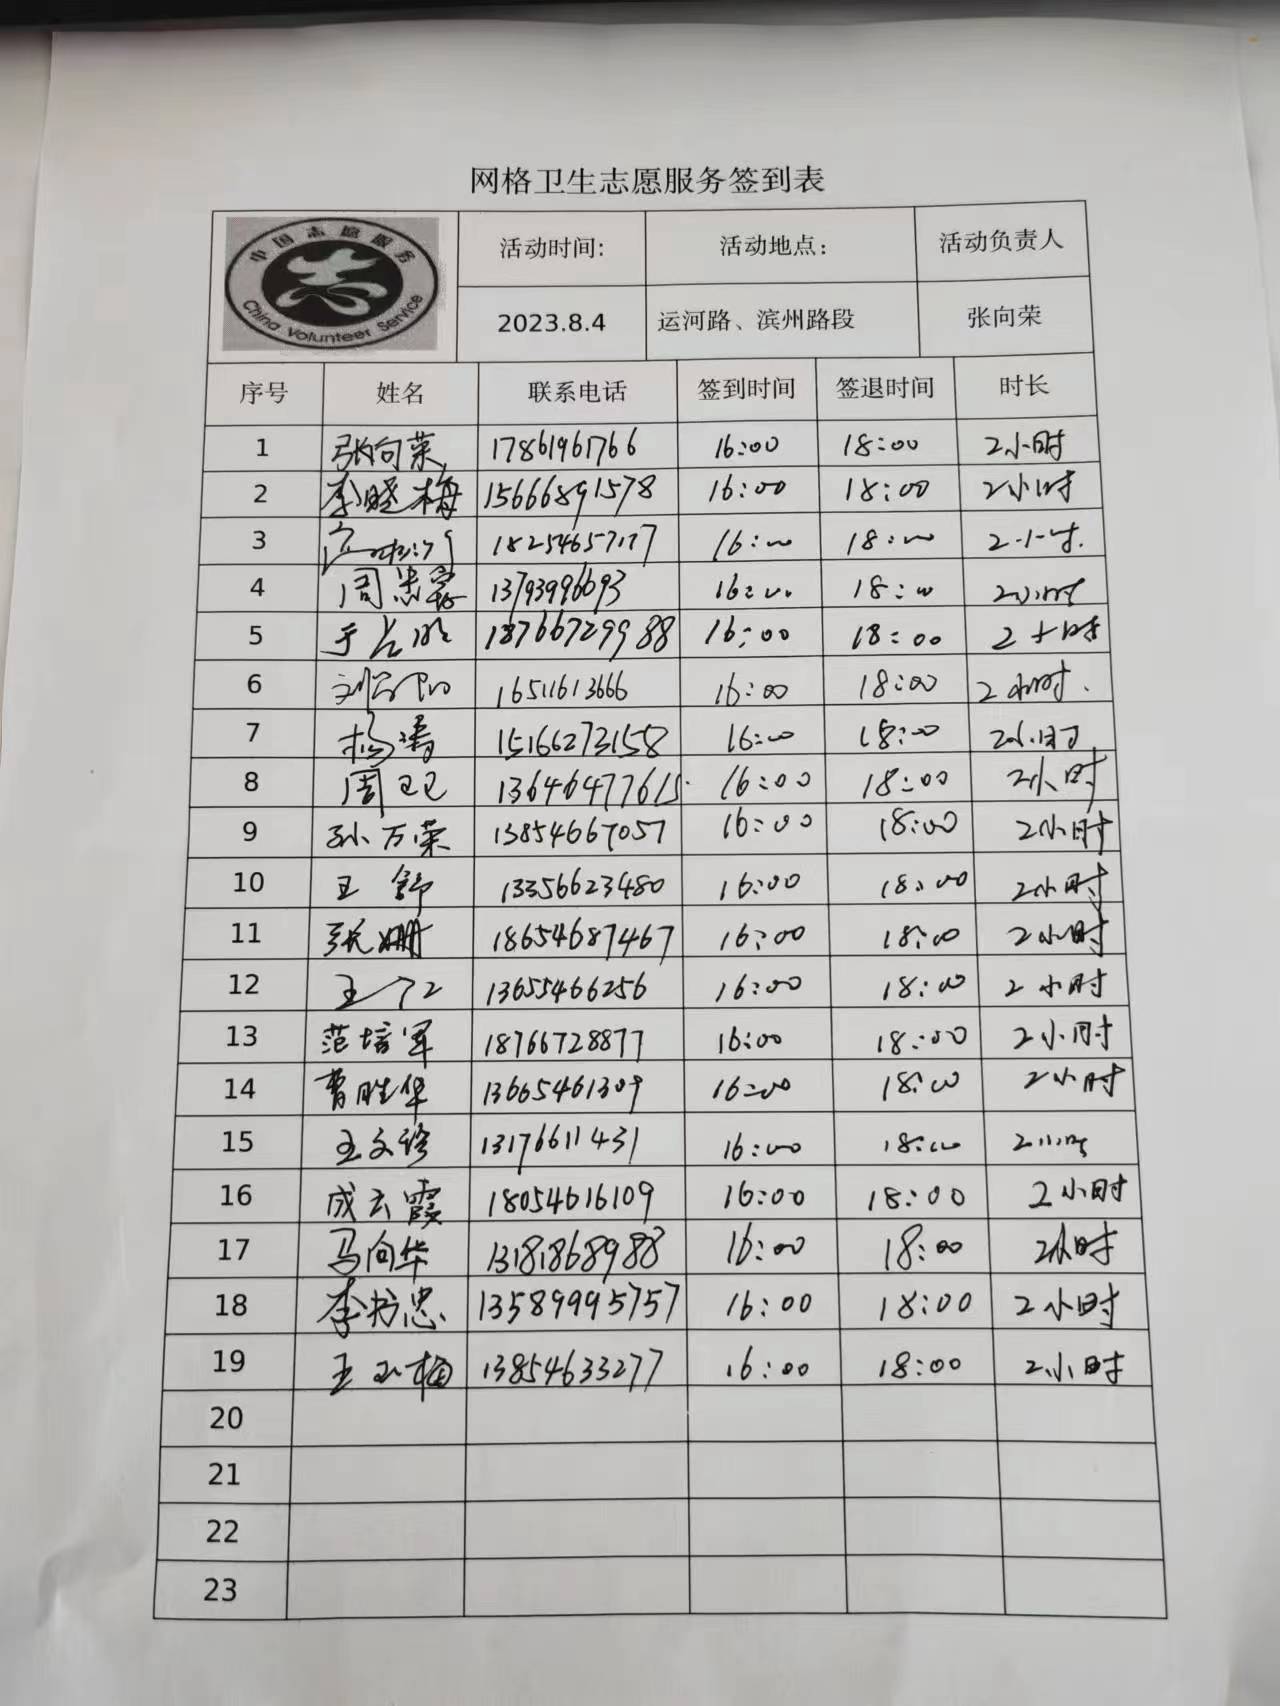 网格卫生志愿服务签到表
中国志愿服务
China Volunteer Service
活动时间: 活动地点: 活动负责人
2023.8.4 运河路、滨州路段 张向荣
序号 姓名 联系电话 签到时间 签退时间 时长
1 张向荣 17861961766 16:00 18:00 2小时
2 李晓梅 15666891578 16:00 18:00 2小时
3 16:00 18:00 2小时
4 13793996693 16:00 18:00 2小时
5 18766729988 16:00 18:00 2小时
6 16511613666 16:00 18:00 2小时.
7 杨涛 15166273158 16:00 18:00 2小时
8 周卫卫 16:00 18:00 2小时
9 孙万荣 13854667057 16:00 18:00 2小时
10 王舒 13356623480 16:00 18:00 2小时
11 张姗 18654687467 16:00 18:00 2小时
12 13655466256 16:00 18:00 2小时
13 范培军 18766728877 16:00 18:00 2小时
14 曹胜华 13665461309 16:00 18:00 2小时
15 13176611431 16:00 18:00 2小时
16 成云霞 18054616109 16:00 18:00 2小时
17 马向华 13181868988 16:00 18:00 2小时
18 13589995757 16:00 18:00 2小时
19 王玉梅 13854633277 16:00 18:00 2小时
20
21
22
23